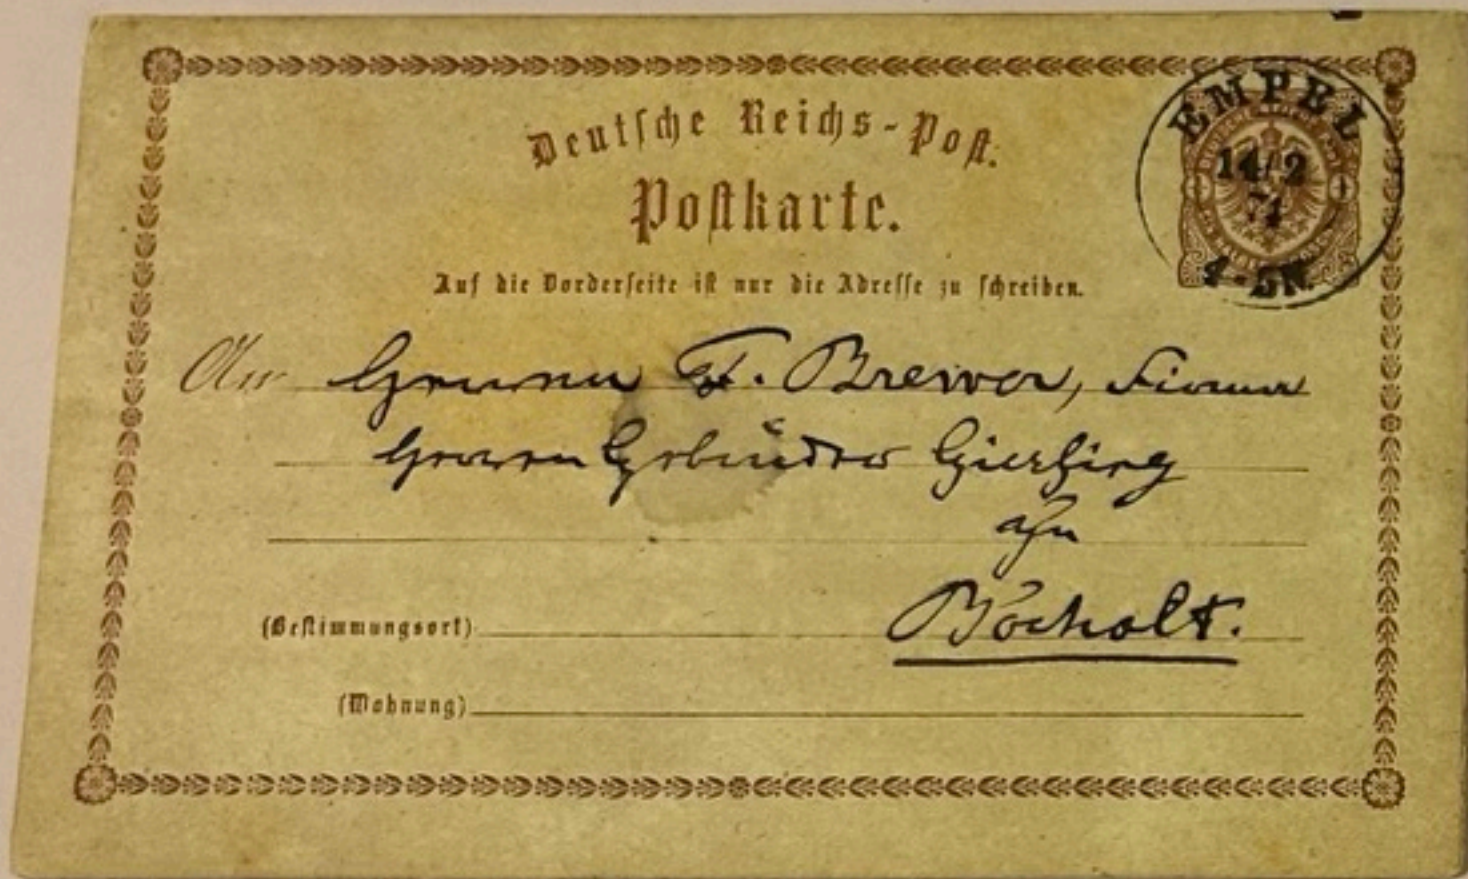 Deutsche Reichs-Post.
Postkarte.
Auf die Vorderseite ist nur die Adresse zu schreiben.
EMPEL
14/2
74
4-5N.
An Herrn F. Brewer, Firma
Herren Gebrüder
Bocholt.
(Bestimmungsort)
(Wohnung)